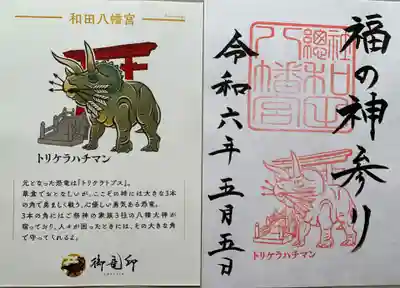 和田八幡宮
トリケラハチマン
元となった恐竜は「トリケラトプス」。
草食でおとなしいが、ここぞの時には大きな3本
の角で勇ましく戦う、心優しい勇気ある恐竜。
3本の角にはご祭神の家族3柱の八幡大神が
宿っており、人々が困ったときには、その大きな角
で守ってくれるよ。
御竜印
福の神参り
総社
和田
八幡宮
令和六年五月五日
トリケラハチマン